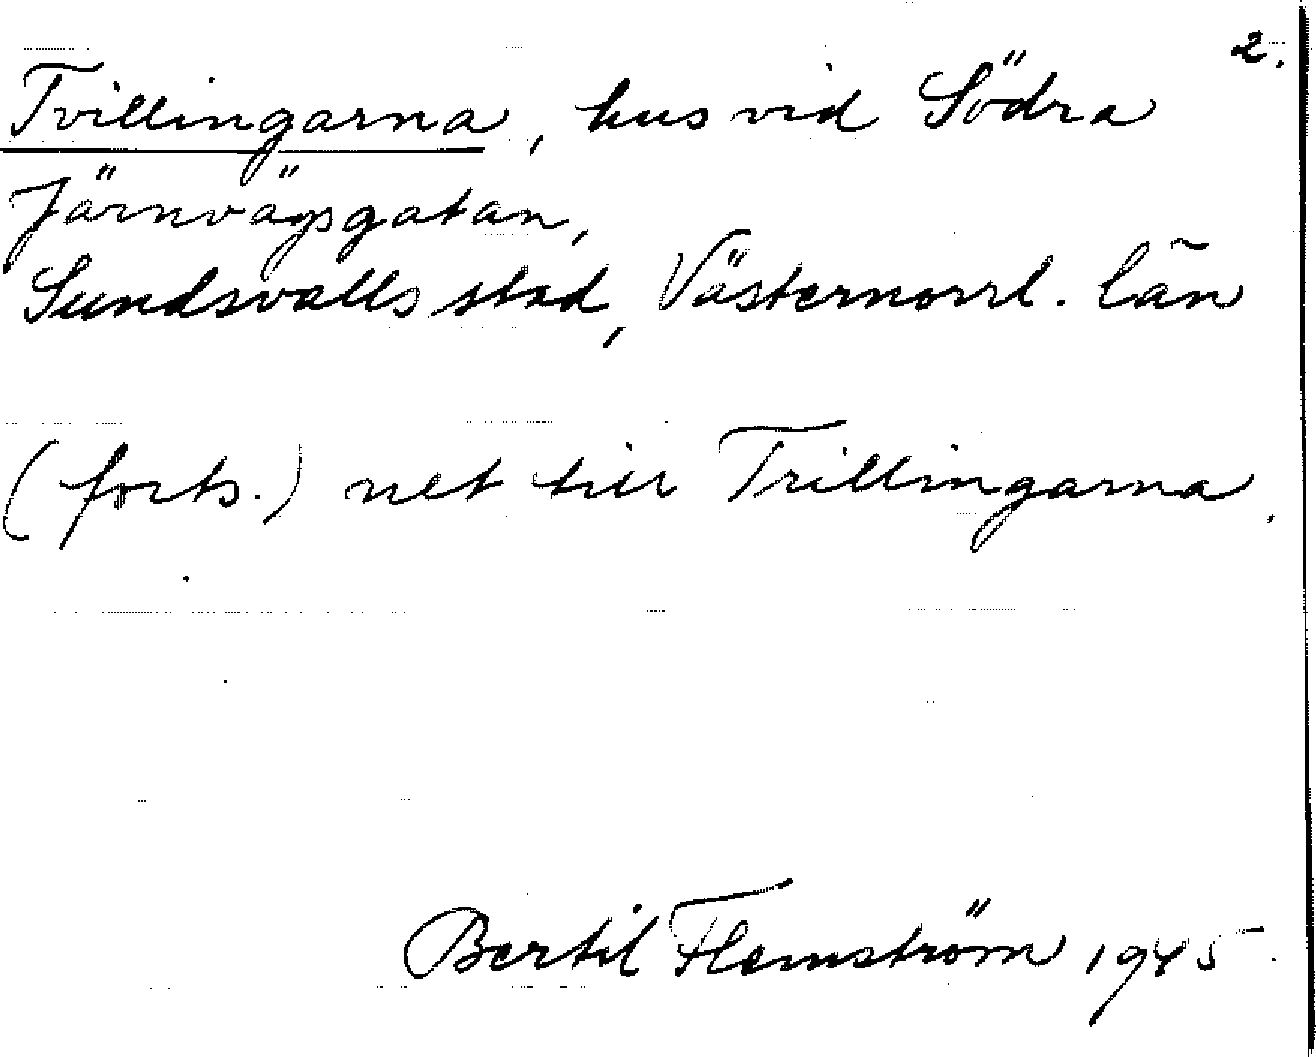 2.
Tvillingarna, hus vid Södra
Järnvägsgatan,
Sundsvalls stad, Västernorrl. län
(forts.) net till Trillingarna.
Bertil Flemström 1945.